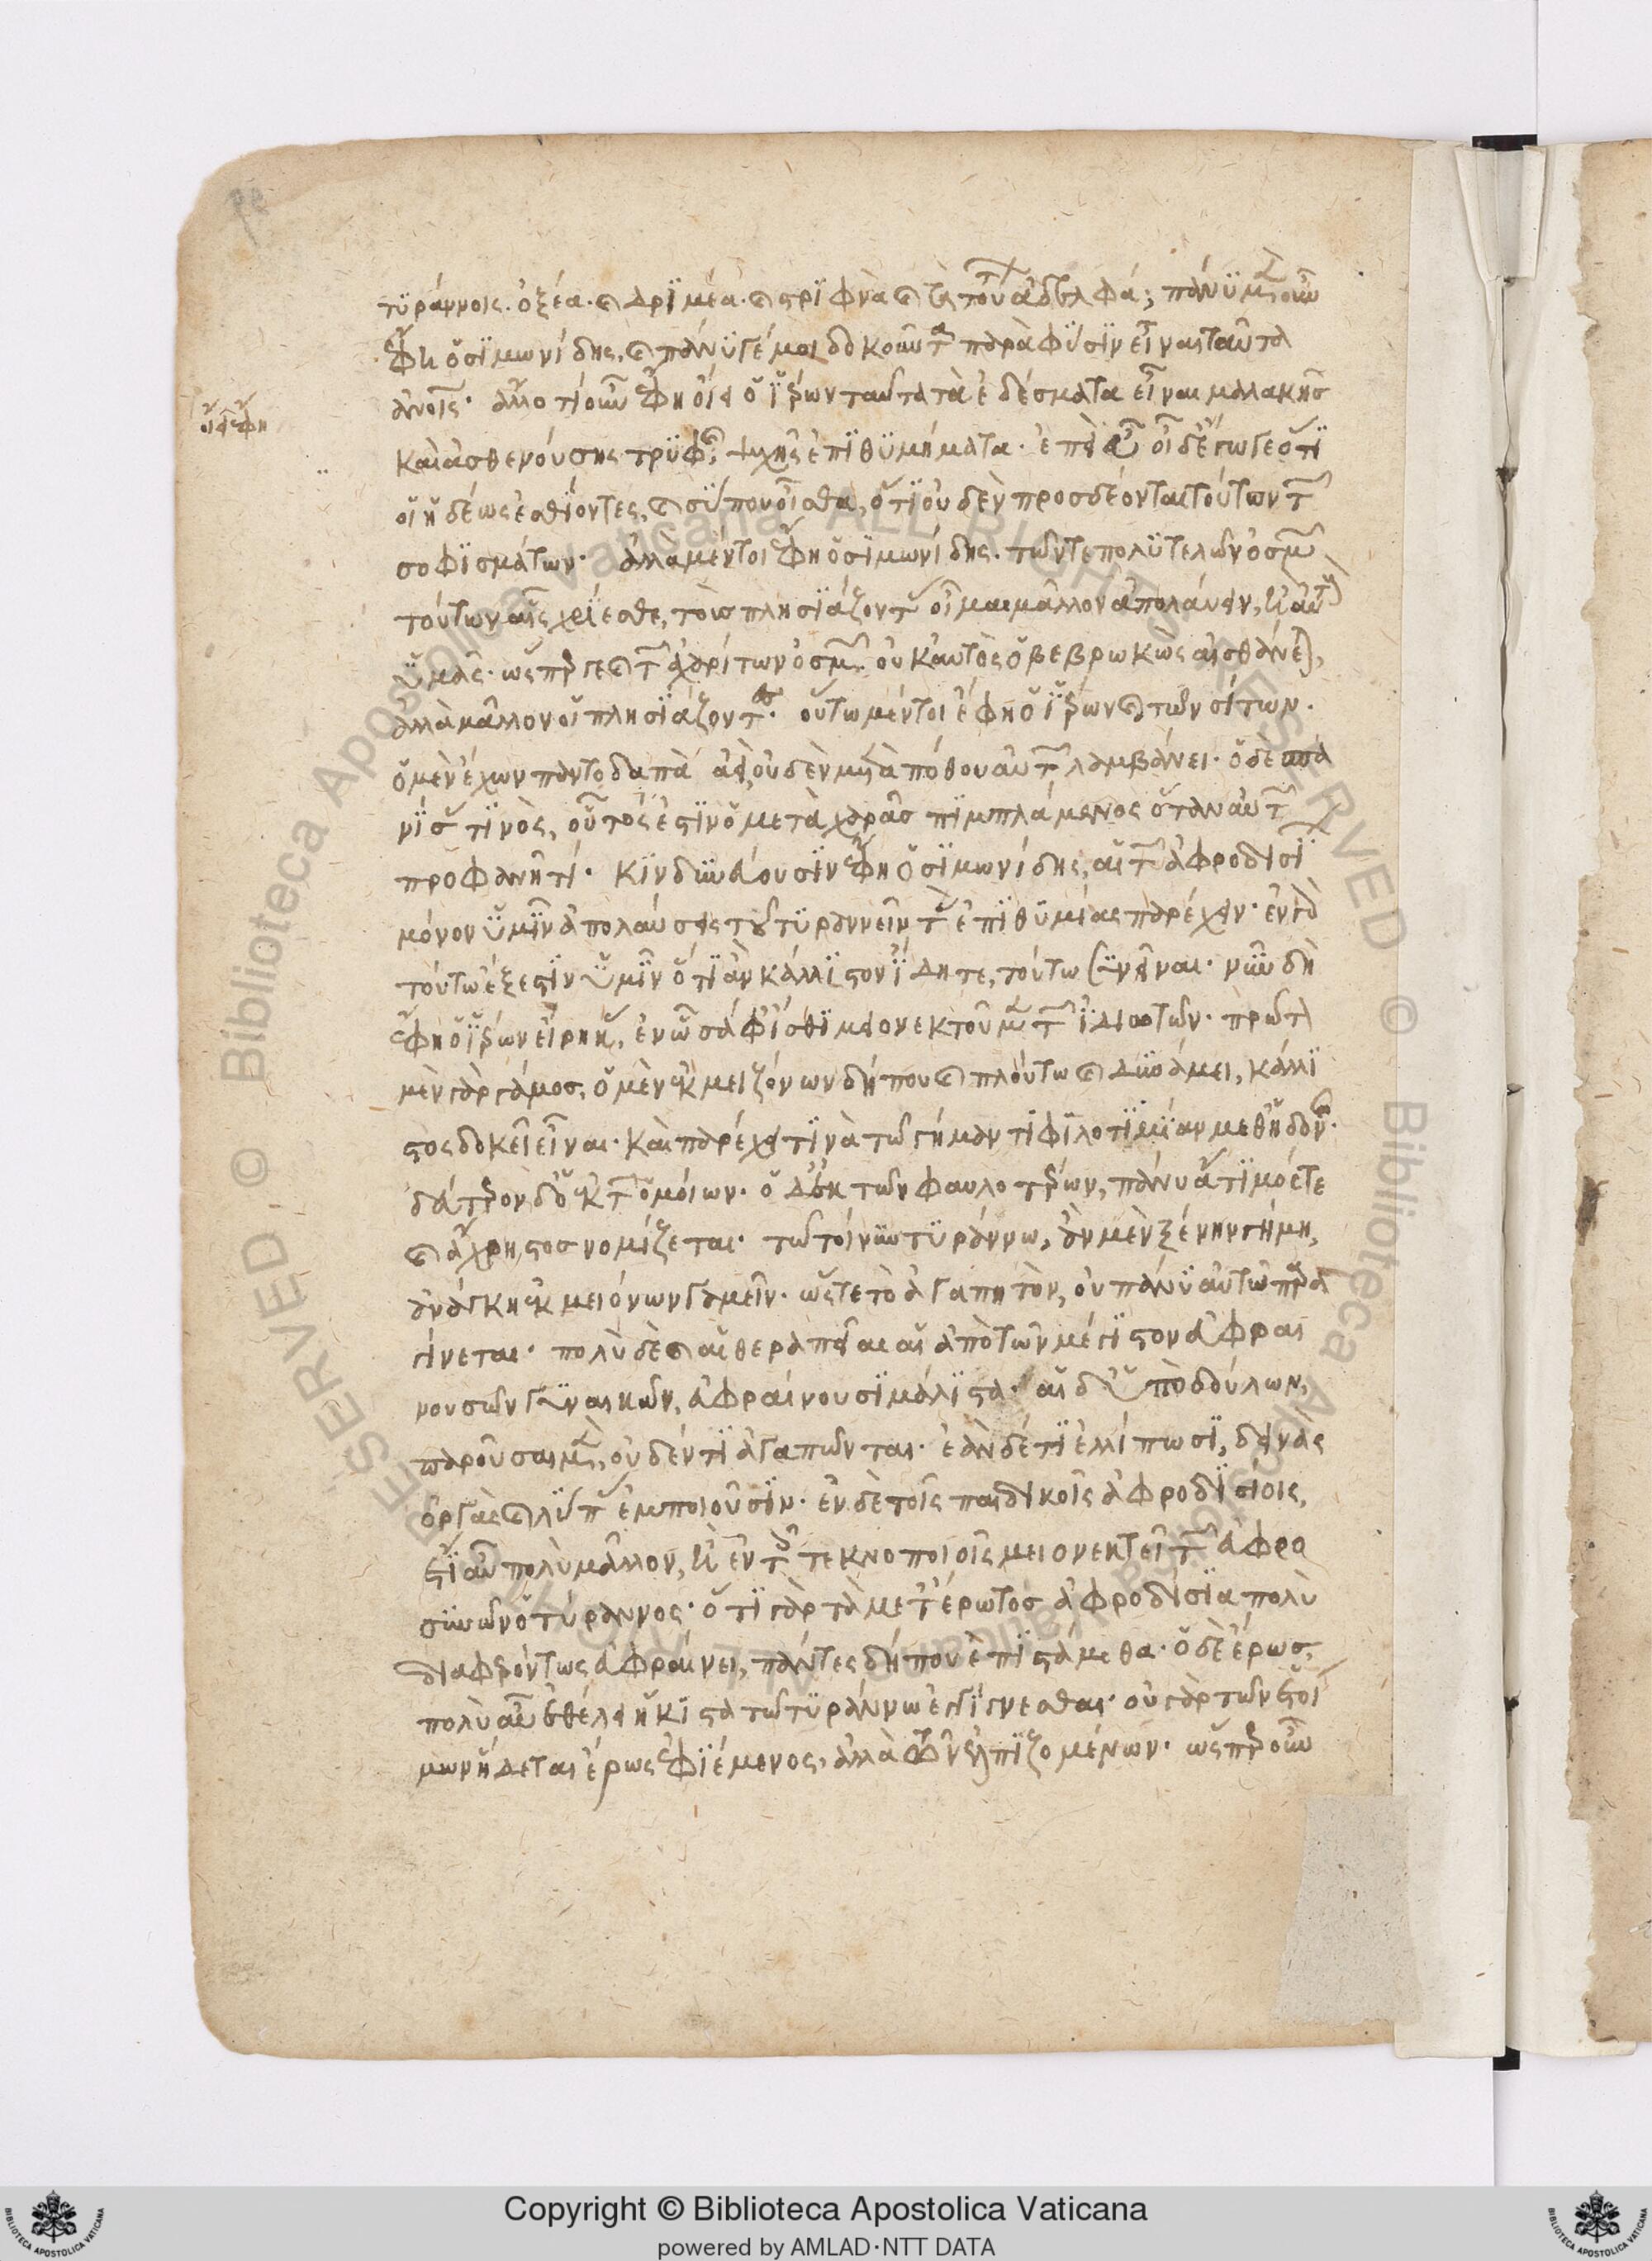 τϋράννοις. ὀξέα. καὶ δριμέα. καὶ στριφνὰ καὶ τὰ τούτων ἀδελφά; πάνυ μὲν οὖν
ἔφη ὁ σιμωνίδης, καὶ πάνυ γέ μοι δοκοῦντα παρὰ φύσιν εἶναι ταῦτα
ἀνοις. ἄλλο τι οὖν ἔφη οἴει ὁ ἱέρων ταῦτα τὰ ἐδέσματα εἶναι μαλακῆς
καὶ ἀσθενούσης τρυφῇ ψυχῆς ἐπιθυμήματα. ἐπεὶ εὖ οἶδ' ἔγωγε ὅτι
οἱ ἡδέως ἐσθίοντες, καὶ σύ που οἶσθα, ὅτι οὐδὲν προσδέονται τούτων τῶν
σοφισμάτων. ἀλλὰ μέντοι ἔφη ὁ σιμωνίδης. τῶν τε πολυτελῶν ὀσμῶν
τούτων αἷς χρίεσθε, τοὺς πλησιάζοντας οἶμαι μᾶλλον ἀπολαύειν, ἢ αὐτοὺς
ὑμᾶς. ὥσπερ γε καὶ τῶν ἀχαρίτων ὀσμῶν οὐκ αὐτὸς ὁ βεβρωκὼς αἰσθάνεται,
ἀλλὰ μᾶλλον οἱ πλησιάζοντες. οὕτω μέντοι ἔφη ὁ ἱέρων καὶ τῶν σίτων.
ὁ μὲν ἔχων παντοδαπὰ ἀεὶ, οὐδὲν μετὰ πόθου αὐτῶν λαμβάνει. ὁ δὲ σπα
νίσας τινὸς, οὗτός ἐστιν ὁ μετὰ χαρᾶς πιμπλάμενος ὅταν αὐτῷ
προφανῇ τι. κινδυνεύουσιν ἔφη ὁ σιμωνίδης, αἱ τῶν ἀφροδισίων
μόνον ὑμῖν ἀπολαύσεις τοῦ τυραννεῖν τὰς ἐπιθυμίας παρέχειν. ἐν γὰρ
τούτῳ ἔξεστιν ὑμῖν ὅ τι ἂν κάλλιστον ἴδητε, τούτῳ συνεῖναι. νῦν δὴ
ἔφη ὁ ἱέρων εἴρηκας, ἐν ᾧ σάφ' ἴσθι μειονεκτοῦμεν τῶν ἰδιωτῶν. πρῶτα
μὲν γὰρ γάμος, ὁ μὲν ἐκ μειζόνων δήπου καὶ πλούτῳ καὶ δυνάμει, κάλλι
στος δοκεῖ εἶναι. καὶ παρέχει τινὰ τῷ γήμαντι φιλοτιμίαν μεθ' ἡδονῆς.
δεύτερον δ' ὁ ἐκ τῶν ὁμοίων. ὁ δ' ἐκ τῶν φαυλοτέρων, πάνυ ἄτιμός τε
καὶ ἄχρηστος νομίζεται. τῷ τοίνυν τυράννῳ, ἂν μὲν ξένην γήμῃ,
ἀνάγκη ἐκ μειόνων γαμεῖν. ὥστε τὸ ἀγαπητὸν, οὐ πάνυ αὐτῷ παρα
γίνεται. πολὺ δὲ καὶ αἱ θεραπεῖαι αἱ ἀπὸ τῶν μέγιστον εὐφραι
νουσῶν γυναικῶν, εὐφραίνουσι μάλιστα. αἱ δ' ὑπὸ δούλων,
παροῦσαι μὲν, οὐδέν τι ἀγαπῶνται. ἐὰν δέ τι ἐλλίπωσι, δεινὰς
ὀργὰς καὶ λύπας ἐμποιοῦσιν. ἐν δὲ τοῖς παιδικοῖς ἀφροδισίοις,
ἔτι αὖ πολὺ μᾶλλον, ἢ ἐν τοῖς τεκνοποιοῖς μειονεκτεῖ τῶν εὐφρο
συνῶν ὁ τύραννος. ὅτι γὰρ τὰ μετ' ἔρωτος ἀφροδίσια πολὺ
διαφερόντως εὐφραίνει, πάντες δήπου ἐπιστάμεθα. ὁ δὲ ἔρως,
πολὺ αὖ ἐθέλει ἥκιστα τῷ τυράννῳ ἐγγίγνεσθαι. οὐ γὰρ τῶν ἑτοί
μων ἥδεται ἔρως ἐφιέμενος, ἀλλὰ τῶν ἐλπιζομένων. ὥσπερ οὖν
Copyright © Biblioteca Apostolica Vaticana
powered by AMLAD·NTT DATA